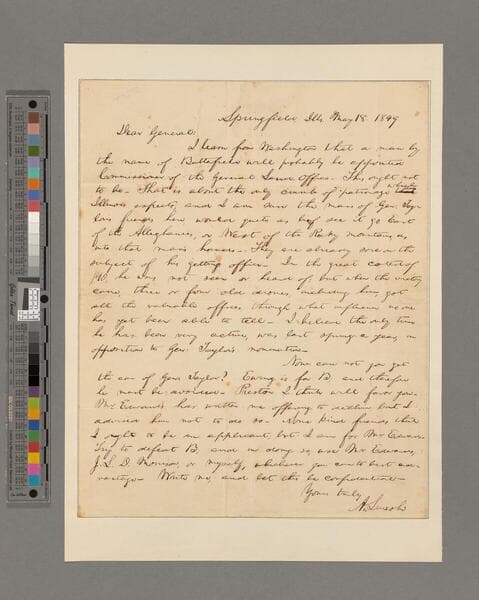 Springfield Ills. May 18. 1849
Dear General:
I learn from Washington that a man by
the name of Butterfield will probably be appointed
Commissioner of the General Land Office. This ought not
to be. That is about the only crumb of patronage which
Illinois expects; and I am sure the mass of Gen: Tay-
lors friends here would quite as lief see it go East
of the Alleghanies, or West of the Rocky mountains, as
into that man's hands. They are already sore on the
subject of his getting office. In the great contest of
'40 he was not seen or heard of; but when the victory
came, three or four old drones, including him, got
all the valuable offices, through what influence no one
has yet been able to tell. I believe the only time
he has been very active, was last spring a year, in
opposition to Gen: Taylor's nomination.
Now can not you get
the ear of Gen: Taylor? Ewing is for B. and therefore
he must be avoided. Preston I think will favor you.
Mr. Edwards has written me offering to decline, but I
advised him not to do so. Some kind friends think
I ought to be an applicant; but I am for Mr. Edwards.
Try to defeat B; and in doing so, use Mr. Edwards,
J. L. D. Morrison, or myself, whichever you can to best ad-
vantage. Write me, and let this be confidential.
Yours truly
A. Lincoln